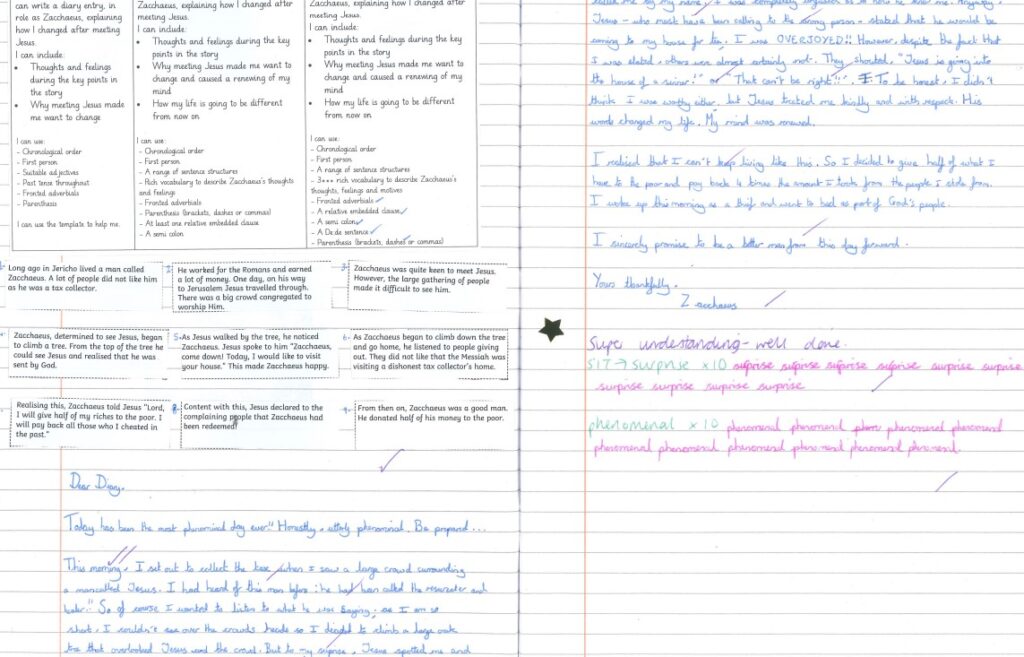 can write a diary entry, in
role as Zacchaeus, explaining
how I changed after meeting
Jesus.
I can include:
Thoughts and feelings
during the key points in
the story
Why meeting Jesus made
me want to change
I can use:
- Chronological order
- First person
- Suitable adjectives
- Past tense throughout
- Fronted adverbials
- Parenthesis
I can use the template to help me.
Zacchaeus, explaining how I changed after
meeting Jesus.
I can include:
Thoughts and feelings during the key
points in the story
Why meeting Jesus made me want to
change and caused a renewing of my
mind
How my life is going to be different
from now on
I can use:
- Chronological order
- First person
- A range of sentence structures
- Rich vocabulary to describe Zacchaeus's thoughts
and feelings
- Fronted adverbials
- Parenthesis (brackets, dashes or commas)
- At least one relative embedded clause
- A semi colon
Zacchaeus, explaining how I changed after
meeting Jesus.
I can include:
Thoughts and feelings during the key
points in the story
Why meeting Jesus made me want to
change and caused a renewing of my
mind
How my life is going to be different
from now on
I can use:
- Chronological order
- First person
- A range of sentence structures
- 3*** rich vocabulary to describe Zacchaeus's
thoughts, feelings and motives
- Fronted adverbials
- A relative embedded clause
- A semi colon
- A De:de sentence
- Parenthesis (brackets, dashes or commas)
Long ago in Jericho lived a man called
Zacchaeus. A lot of people did not like him
as he was a tax collector.
2. He worked for the Romans and earned
a lot of money. One day, on his way
to Jerusalem Jesus travelled through.
There was a big crowd congregated to
worship Him.
3. Zacchaeus was quite keen to meet Jesus.
However, the large gathering of people
made it difficult to see him.
Zacchaeus, determined to see Jesus, began
to climb a tree. From the top of the tree he
could see Jesus and realised that he was
sent by God.
5. As Jesus walked by the tree, he noticed
Zacchaeus. Jesus spoke to him "Zacchaeus,
come down! Today, I would like to visit
your house." This made Zacchaeus happy.
6. As Zacchaeus began to climb down the tree
and go home, he listened to people giving
out. They did not like that the Messiah was
visiting a dishonest tax collector's home.
Realising this, Zacchaeus told Jesus "Lord,
I will give half of my riches to the poor. I
will pay back all those who I cheated in
the past."
8. Content with this, Jesus declared to the
complaining people that Zacchaeus had
been redeemed!
9. From then on, Zacchaeus was a good man.
He donated half of his money to the poor.
Dear Diary,
Today has been the most phenominal day ever!! Honestly, utterly phenominal. Be prepared...
This morning, I set out to collect the taxes when I saw a large crowd surrounding
a man called Jesus. I had heard of this man before: he had been called the resurrecter and
healer!! So of course I wanted to listen to what he was saying; as I am so
short, I couldn't see over the crowds heads so I decided to climb a large oak
tree that overlooked Jesus and the crowd. But to my suprise, Jesus spotted me and
Jesus - who must have been calling to the wrong person - stated that he would be
coming to my house for tea. I was OVERJOYED!! However, despite the fact that
I was elated, others were almost certainly not. They shouted, "Jesus is going into
the house of a sinner!" or "That can't be right!!" To be honest, I didn't
think I was worthy either, but Jesus treated me kindly and with respect. His
words changed my life. My mind was renewed.
I realised that I can't keep living like this. So I decided to give half of what I
have to the poor and pay back 4 times the amount I took from the people I stole from.
I woke up this morning as a thief and went to bed as part of God's people.
I sincerely promise to be a better man from this day forward.
Yours thankfully,
Zacchaeus
Supe understanding - well done.
SIT → surprise x10 surprise surprise surprise surprise surprise surprise
surprise surprise surprise surprise
phenomenal x10 phenomenal phenomenal phenomenal phenomenal
phenomenal phenomenal phenomenal phenomenal phenomenal phenomenal